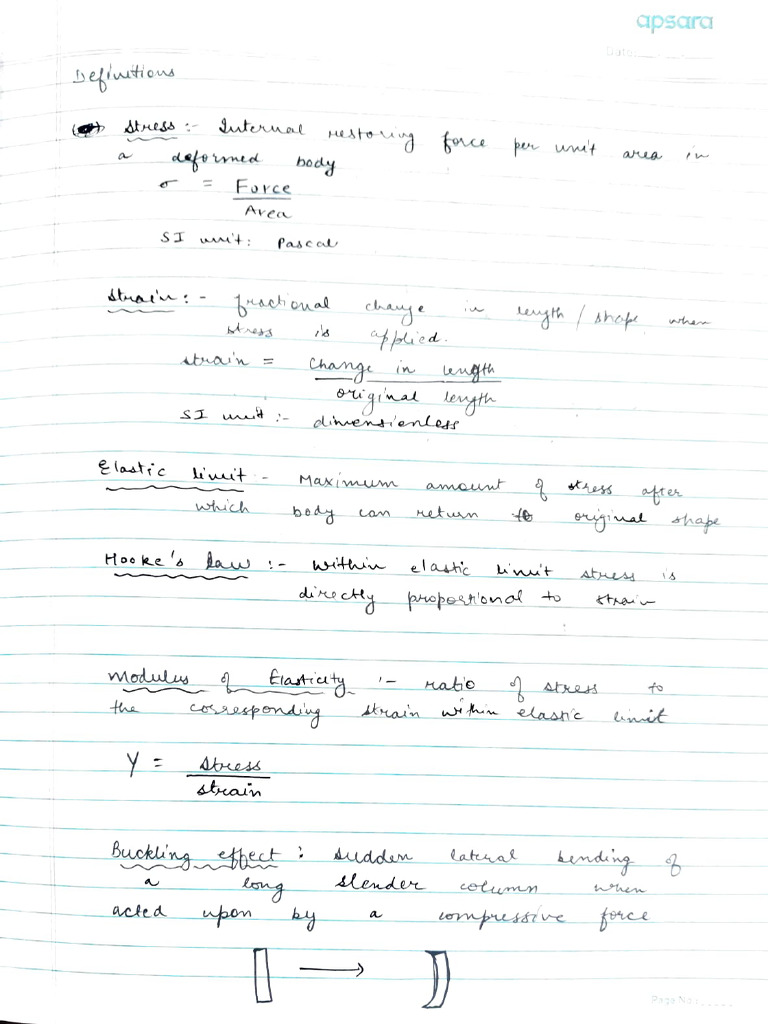 apsara
Date:
Definitions
Stress :- Internal restoring force per unit area in
a deformed body
σ = Force
Area
SI unit: Pascal
Strain :- fractional change in length / shape when
stress is applied.
strain = change in length
original length
SI unit :- dimensionless
Elastic limit - Maximum amount of stress after
which body can return to original shape
Hooke's law :- within elastic limit stress is
directly proportional to strain
Modulus of Elasticity :- ratio of stress to
the corresponding strain within elastic limit
Y = stress
strain
Buckling effect : sudden lateral bending of
a long slender column when
acted upon by a compressive force
Page No.: